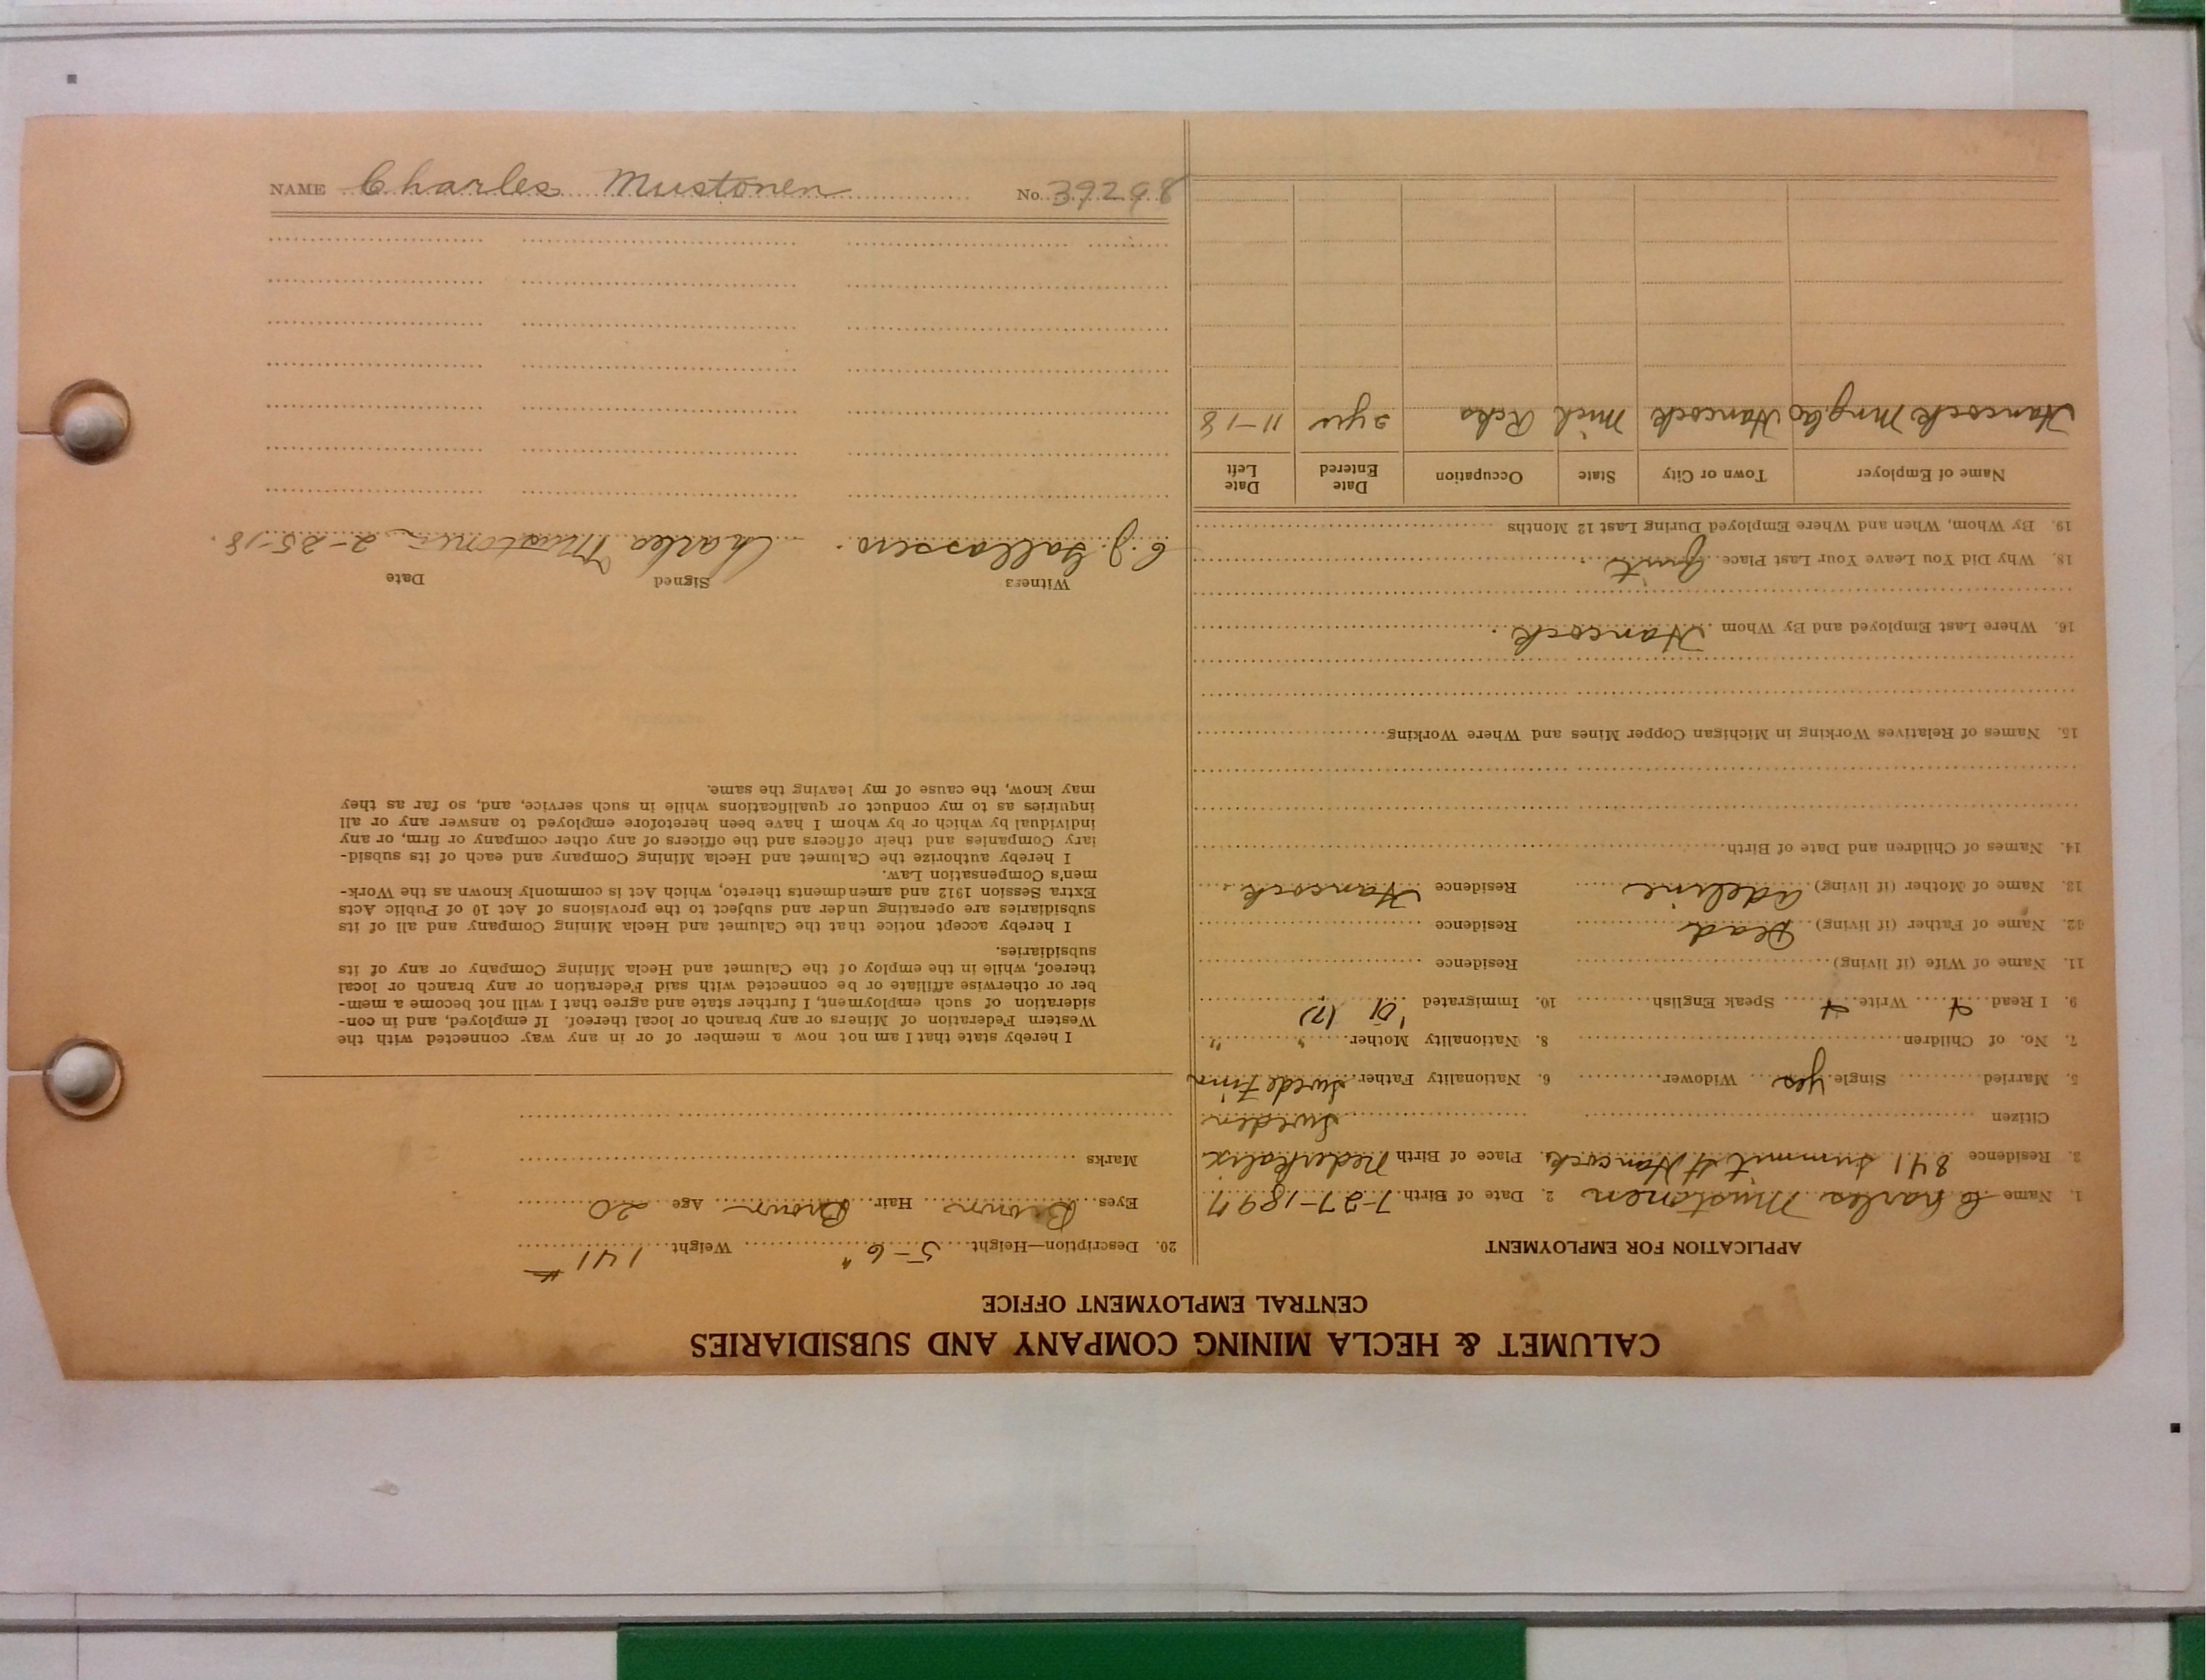 NAME Charles Mustonen No. 39298
CALUMET & HECLA MINING COMPANY AND SUBSIDIARIES
CENTRAL EMPLOYMENT OFFICE
APPLICATION FOR EMPLOYMENT
1. Name Charles Mustonen 2. Date of Birth 7-27-1897
3. Residence 841 Summit St Hancock. Place of Birth Nederkalix
Citizen Sweden
5. Married Single yes Widower 6. Nationality Father Swede Finn
7. No. of Children 8. Nationality Mother " "
9. I Read Write Speak English 10. Immigrated '01
11. Name of Wife (if living) Residence
12. Name of Father (if living) Dead Residence
13. Name of Mother (if living) Adeline Residence Hancock
14. Names of Children and Date of Birth
15. Names of Relatives Working in Michigan Copper Mines and Where Working
16. Where Last Employed and By Whom Hancock.
18. Why Did You Leave Your Last Place Quit
19. By Whom, When and Where Employed During Last 12 Months
Name of Employer Town or City State Occupation Date Entered Date Left
Hancock Mng Co Hancock Mich 2 yrs 11-18
20. Description—Height 5-6" Weight 141 #
Eyes Brown Hair Brown Age 20
Marks
I hereby state that I am not now a member of or in any way connected with the
Western Federation of Miners or any branch or local thereof. If employed, and in con-
sideration of such employment, I further state and agree that I will not become a mem-
ber or otherwise affiliate or be connected with said Federation or any branch or local
thereof, while in the employ of the Calumet and Hecla Mining Company or any of its
subsidiaries.
I hereby accept notice that the Calumet and Hecla Mining Company and all of its
subsidiaries are operating under and subject to the provisions of Act 10 of Public Acts
Extra Session 1912 and amendments thereto, which Act is commonly known as the Work-
men's Compensation Law.
I hereby authorize the Calumet and Hecla Mining Company and each of its subsid-
iary Companies and their officers and the officers of any other company or firm, or any
individual by which or by whom I have been heretofore employed to answer any or all
inquiries as to my conduct or qualifications while in such service, and, so far as they
may know, the cause of my leaving the same.
Witness Signed Date
C. J. Charles Mustonen 2-25-18.